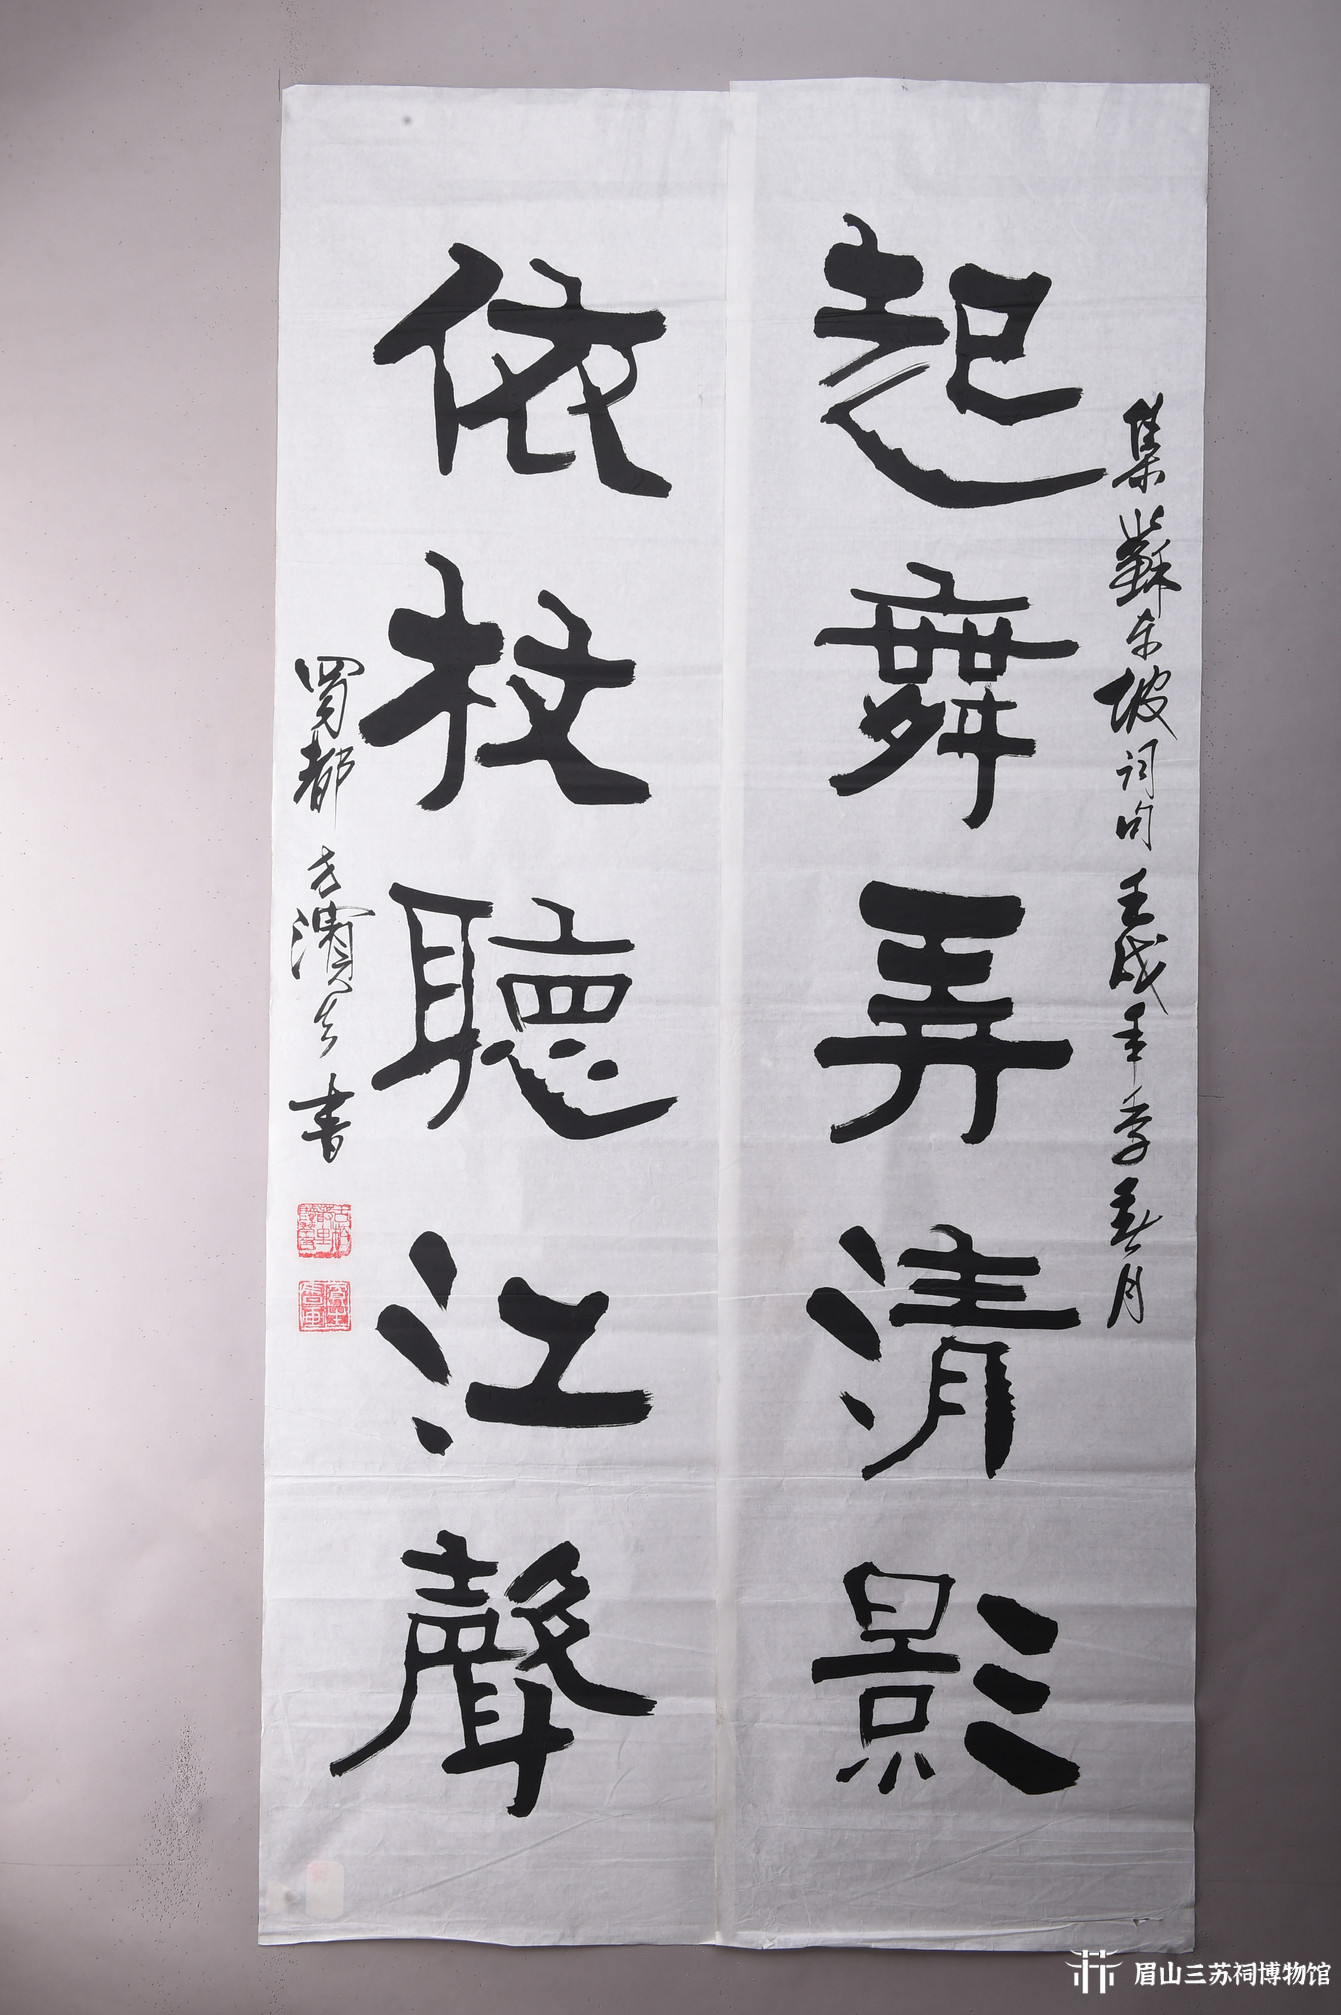 起舞弄清影
集蘇东坡词句壬戌年季春月
依杖聽江聲
蜀都方濱生書
眉山三苏祠博物馆